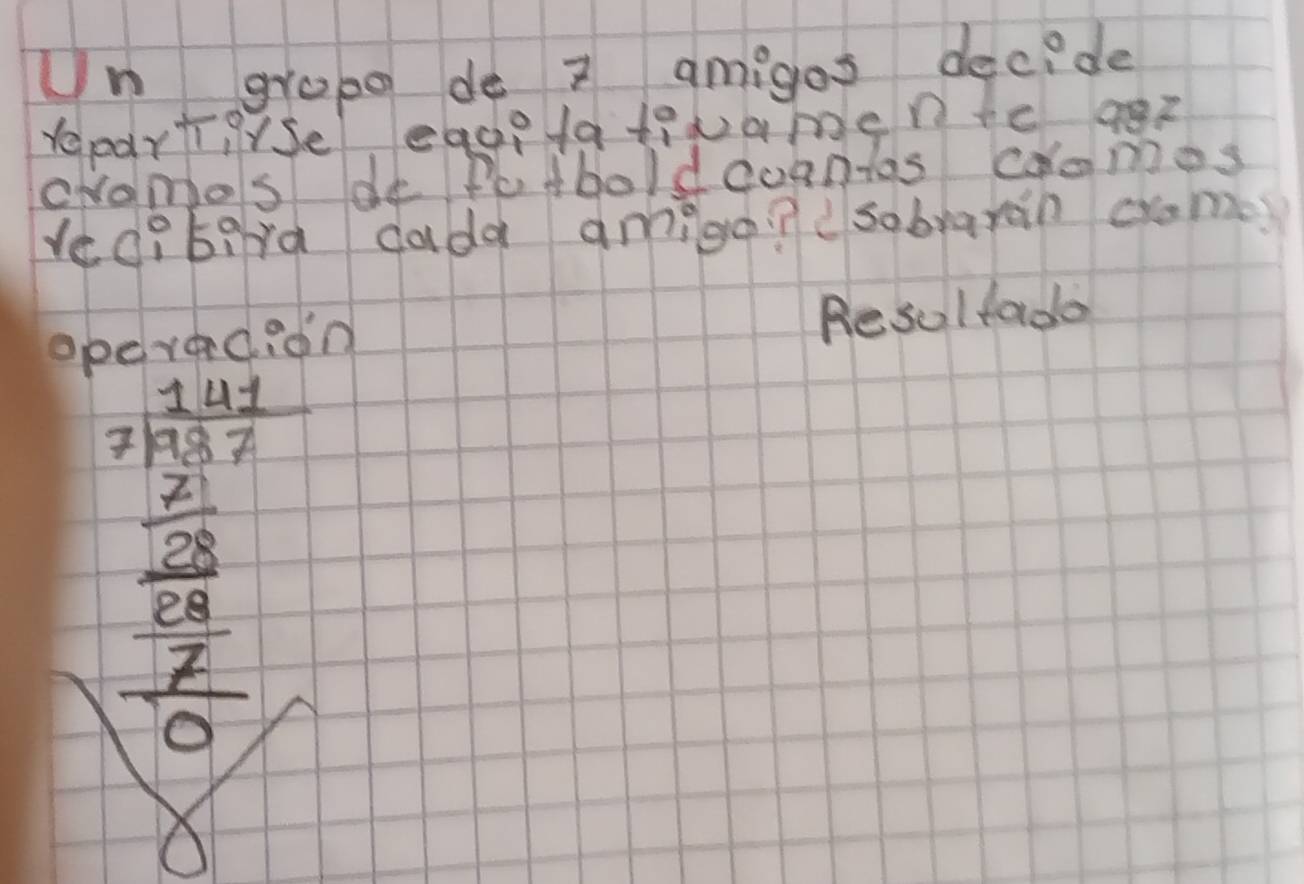 Un grupo de 7 amigos decide
repartirse equitativamente 987
cromos de futbol ¿cuantos cromos
recibira cada amigo? ¿sobrarán cromos
operación
Resultado
141
7 987
7
28
28
7
0